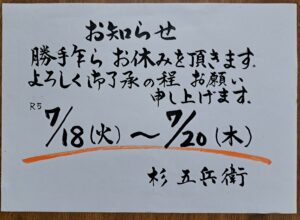 お知らせ
勝手乍ら お休みを頂きます.
よろしく御了承の程 お願い
申し上げます.
R5
7/18(火)〜7/20(木)
杉 五兵衛